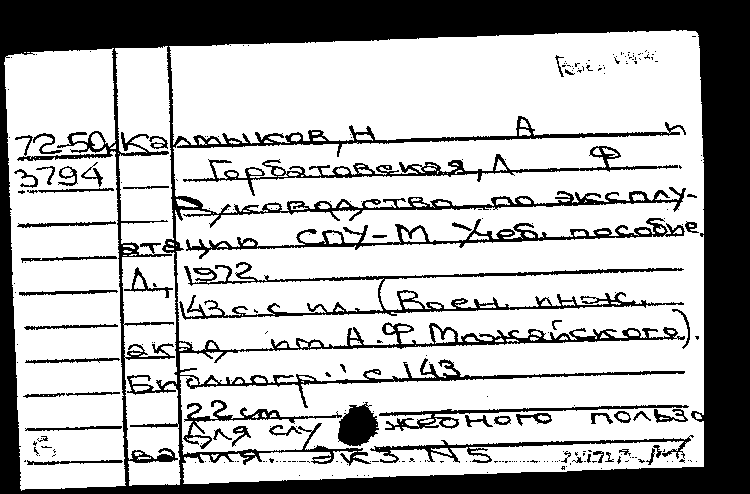 72-50к Калмыков, Н А и
3794 Горбатовская, Л Ф
Руководство по эксплу-
атации СПУ-М. Учеб. пособие.
Л., 1972.
143 с. с ил. (Воен. инж.
акад. им. А.Ф. Можайского).
Библиогр.: с. 143.
22 см.
Для служебного пользо
вания. Экз. N5